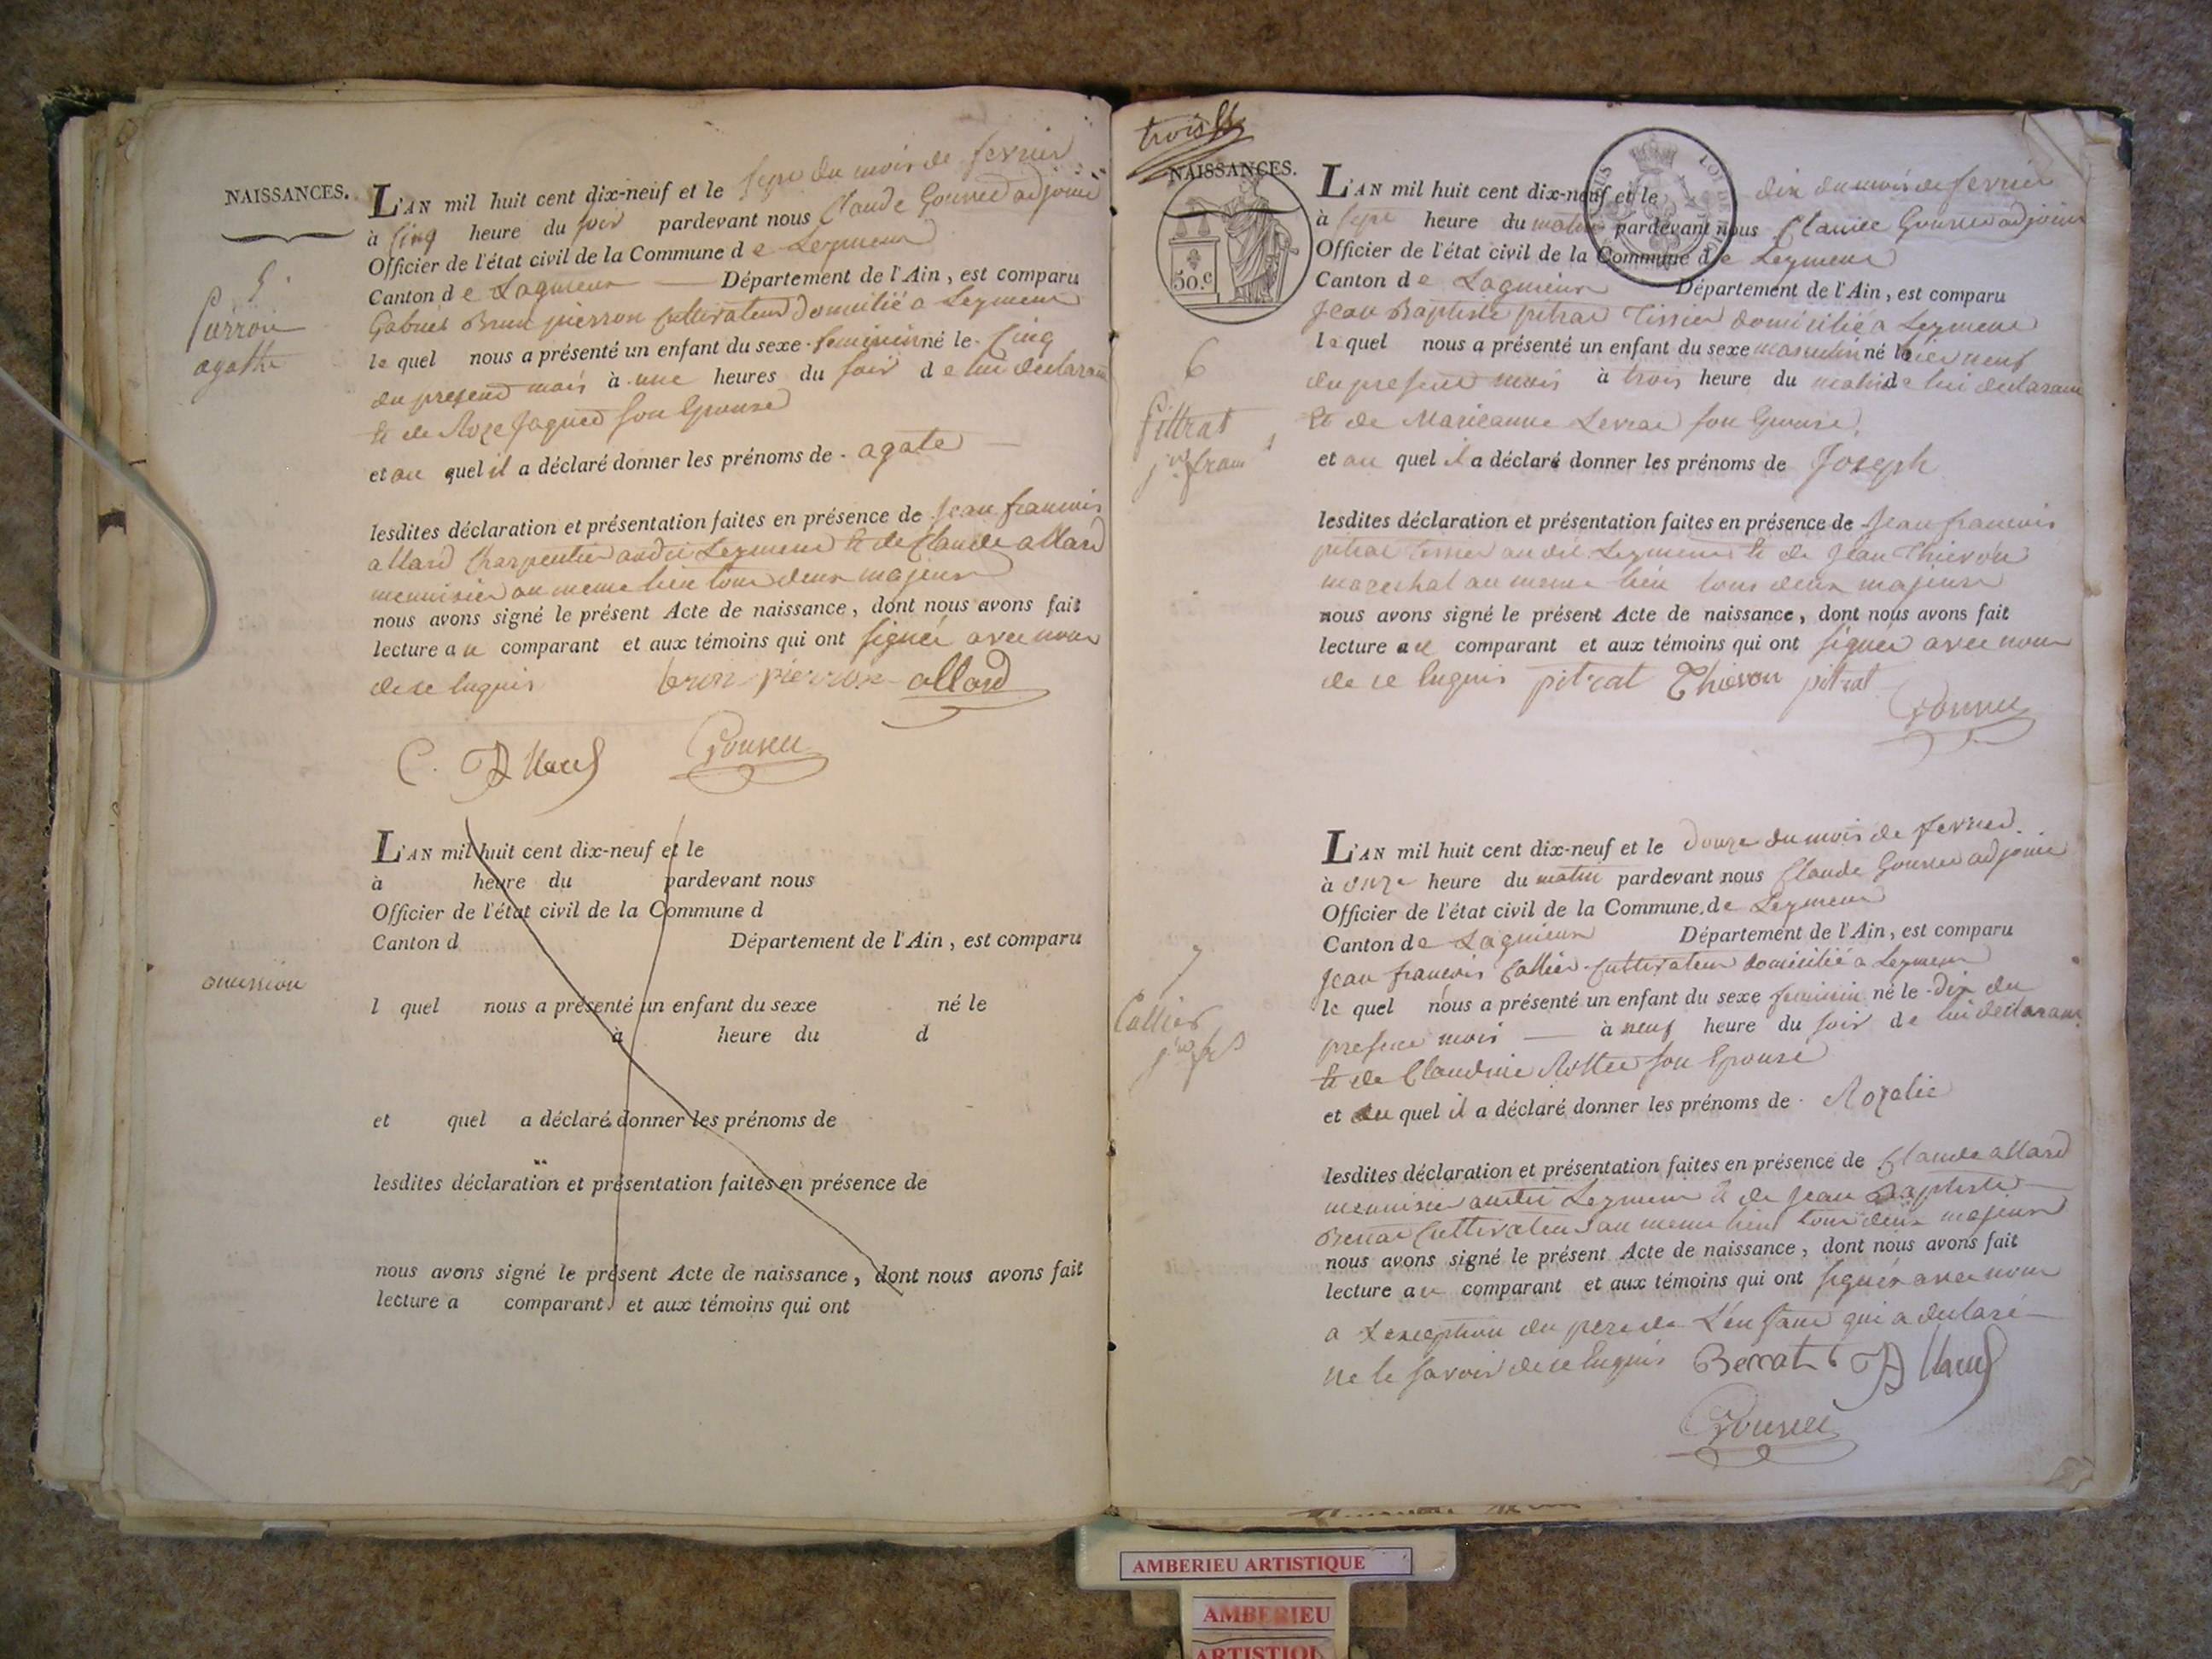 NAISSANCES.
L'AN mil huit cent dix-neuf et le sept du mois de fevrier
à cinq heure du soir pardevant nous Claude Gounet adjoint
Officier de l'état civil de la Commune de Leyment
Canton de Lagnieux Département de l'Ain, est comparu
Gabriel Brun pierron Cultivateur domicilié a Leyment
le quel nous a présenté un enfant du sexe feminin né le cinq
du present mois à une heures du soir de lui declarant
et de Roze Jaquet son Epouse
et au quel il a déclaré donner les prénoms de agate
lesdites déclaration et présentation faites en présence de Jean francois
allard Charpentier audit Leyment et de Claude allard
menuisier au meme lieu tous deux majeurs
nous avons signé le présent Acte de naissance, dont nous avons fait
lecture au comparant et aux témoins qui ont signés avec nous
de ce enquis brun pierron allard
C. Allard
5.
Pierron
agathe
L'AN mil huit cent dix-neuf et le
à heure du pardevant nous
Officier de l'état civil de la Commune d
Canton d Département de l'Ain, est comparu
l quel nous a présenté un enfant du sexe né le
à heure du d
et quel a déclaré donner les prénoms de
lesdites déclaration et présentation faites en présence de
nous avons signé le présent Acte de naissance, dont nous avons fait
lecture a comparant et aux témoins qui ont
omission
trois
NAISSANCES.
50.c
L'AN mil huit cent dix-neuf et le dix du mois de fevrier
à sept heure du matin pardevant nous Claude Gounet adjoint
Officier de l'état civil de la Commune de Leyment
Canton de Lagnieux Département de l'Ain, est comparu
Jean Baptiste pitrat Tissier domicilié a Leyment
le quel nous a présenté un enfant du sexe masculin né hier neuf
du present mois à trois heure du matin de lui declarant
et de Marieanne son Epouse,
et au quel il a déclaré donner les prénoms de Joseph
lesdites déclaration et présentation faites en présence de Jean francois
pitrat tissier audit Leyment et de Jean Thievon
marechal au meme lieu tous deux majeurs
nous avons signé le présent Acte de naissance, dont nous avons fait
lecture au comparant et aux témoins qui ont signés avec nous
de ce enquis pitrat Thievon pitrat
6
Pittrat
L'AN mil huit cent dix-neuf et le douze du mois de fevrier
à onze heure du matin pardevant nous Claude Gounet adjoint
Officier de l'état civil de la Commune de Leyment
Canton de Lagnieux Département de l'Ain, est comparu
Jean francois Collier Cultivateur domicilié a Leyment
le quel nous a présenté un enfant du sexe feminin né le dix du
present mois à neuf heure du soir de lui declarant
et de Claudine son Epouse
et au quel il a déclaré donner les prénoms de Rozalie
lesdites déclaration et présentation faites en présence de Claude allard
menuisier audit Leyment et de Jean Baptiste
Berrat Cultivateur au meme lieu tous deux majeurs
nous avons signé le présent Acte de naissance, dont nous avons fait
lecture au comparant et aux témoins qui ont signés avec nous
a Lexception du pere de L'enfant qui a declaré
ne le savoir de ce enquis Berrat C Allard
7
Collier
AMBERIEU ARTISTIQUE
AMBERIEU